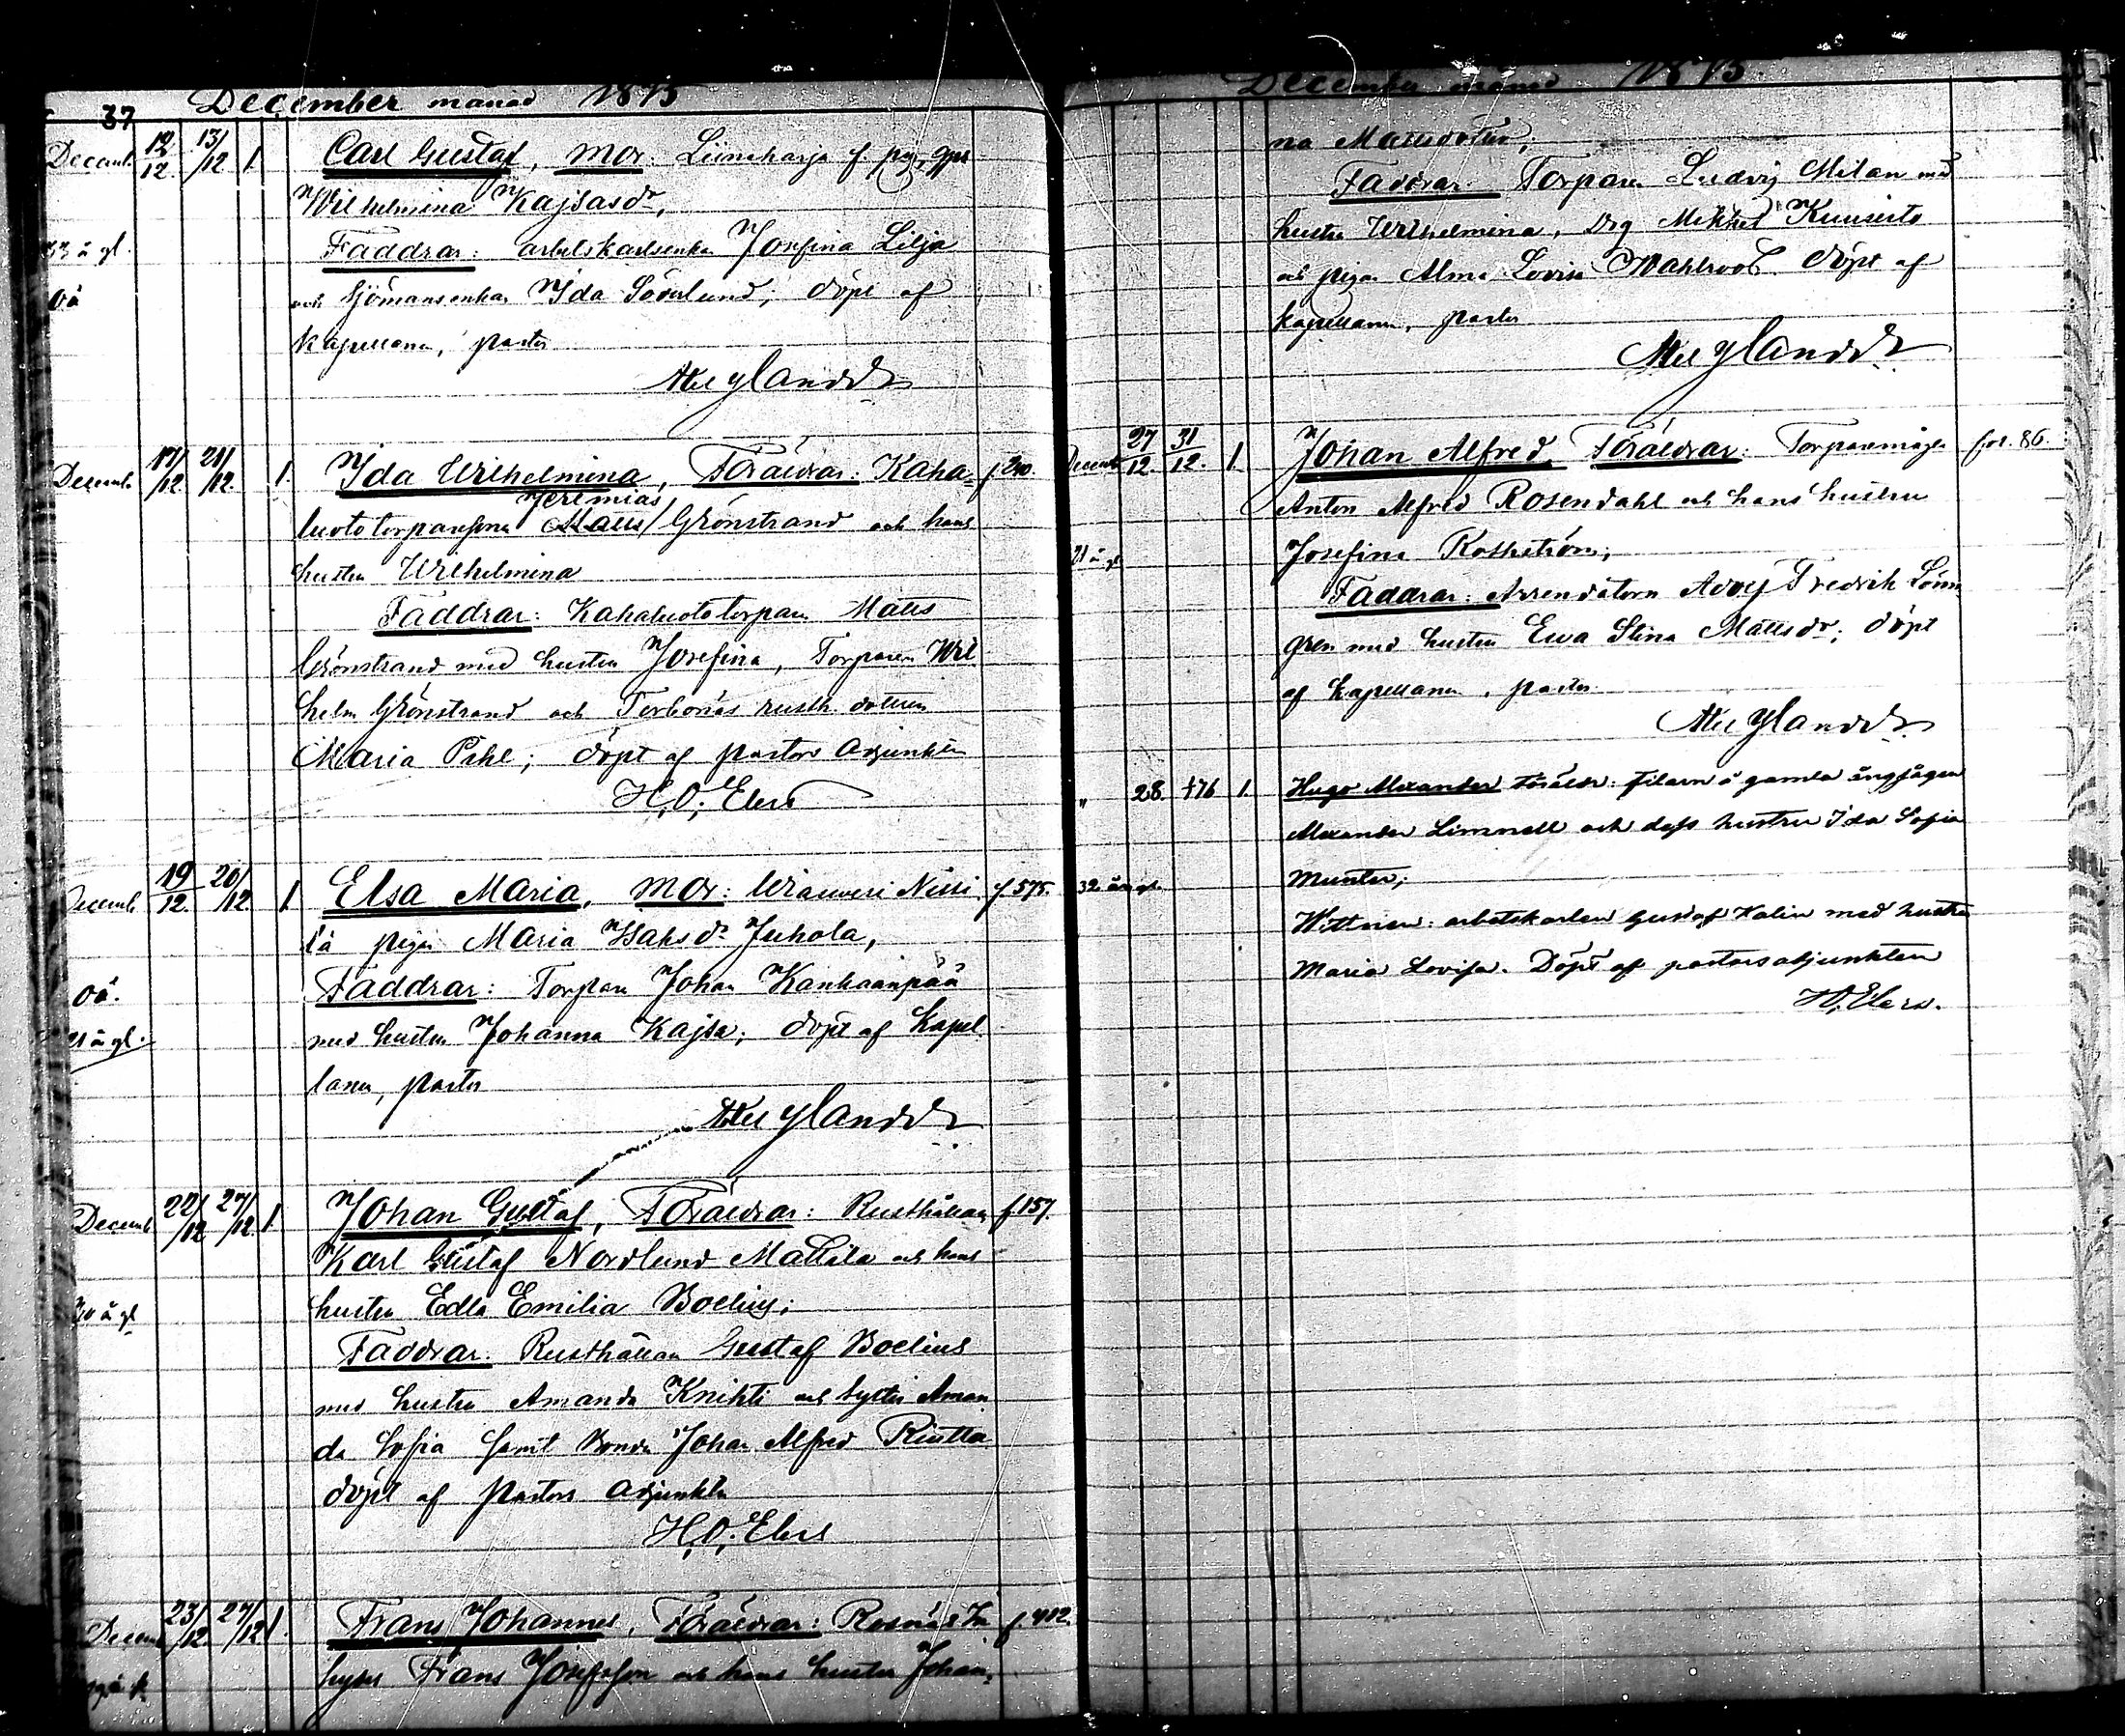 37 December månad 1875
Decemb. 12/12. 13/12 1 Carl Gustaf, Mor: f. pig.
Wilhelmina Kajsasdr,
Faddrar: arbetskarlsenka Josefina Lilja
33 å gl.
och sjömansenkan Ida Söderlund; döpt af
oä
kapellanen, pastor
Ylander
Decemb. 17/12 21/12. 1. Ida Wilhelmina, Föräldrar: Kaha= f. 240.
Jeremias
luoto torparesonen Matts Grönstrand och hans
hustru Wilhelmina
Faddrar: Kahaluoto torparen Matts
Grönstrand med hustru Josefina, Torparen Wil
helm Grönstrand och Torbonäs rusth. dottern
Maria Pihl; döpt af pastors adjunkten
H. O. Elers
Decemb 19/12. 20/12 1 Elsa Maria, Mor: Nissi f. 575.
pigan Maria Isaksdr Juhola,
Faddrar: Torparen Johan Kankaanpää
oä.
med hustru Johanna Kajsa; döpt af kapel
21 å gl.
lanen, pastor
Ylander
Decemb 22/12 27/12 1 Johan Gustaf, Föräldrar: Rusthållaren f. 157.
Karl Gustaf Nordlund Mattila och hans
hustru Edla Emilia Boelius;
30 å gl
Faddrar: Rusthållaren Gustaf Boelius
med hustru Amanda Knihti och syster Aman
da Sofia samt Bonden Johan Alfred
döpt af pastors adjunkten
H. O. Elers
Decem 23/12. 27/12 1. Frans Johannes, Föräldrar: Rosnäs In f. 412.
hyses Frans Josefsson och hans hustru Johan=
December månad 1875.
na Mattsdotter;
Faddrar: Torparen Ludvig Milan med
hustru Wilhelmina, Drg Mikkel Kuusisto
och pigan Alma Lovisa Wahlroos. döpt af
kapellanen, pastor
Ylander
Decemb 27/12. 31/12. 1. Johan Alfred, Föräldrar: Torparemågen fol. 86.
Anton Alfred Rosendahl och hans hustru
21 å gl
Josefina Rothström;
Faddrar: Arrendatorn Adolf Fredrik Lönn
gren med hustru Ewa Stina Mattsdr; döpt
af kapellanen, pastor
Ylander
" 28. 1. Hugo Alexander Föräldr: filaren å gamla ångsågen
Alexander Limnell och dess hustru Ida Sofia
32 år gl.
Munter;
Wittnen: arbetskarlen Gustaf Kalin med hustru
Maria Lovisa. Döpt af pastorsadjunkten
H. O. Elers.